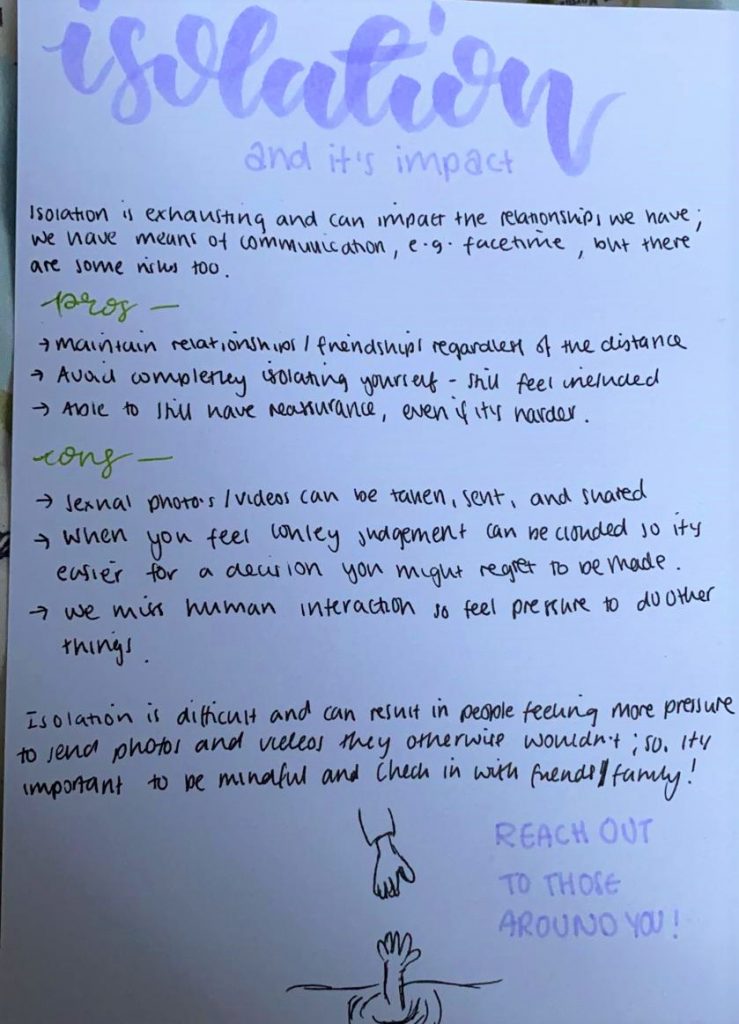 isolation
and it's impact
Isolation is exhausting and can impact the relationships we have;
we have means of communication, e.g. facetime, but there
are some risks too.
pros —
→ maintain relationships/friendships regardless of the distance
→ Avoid completley isolating yourself - still feel included
→ Able to still have reassurance, even if it's harder.
cons —
→ sexual photo's/videos can be taken, sent, and shared
→ when you feel lonley judgement can be clouded so it's
easier for a decision you might regret to be made.
→ we miss human interaction so feel pressure to do other
things.
Isolation is difficult and can result in people feeling more pressure
to send photos and videos they otherwise wouldn't; so, it's
important to be mindful and check in with friends/family!
REACH OUT
TO THOSE
AROUND YOU!